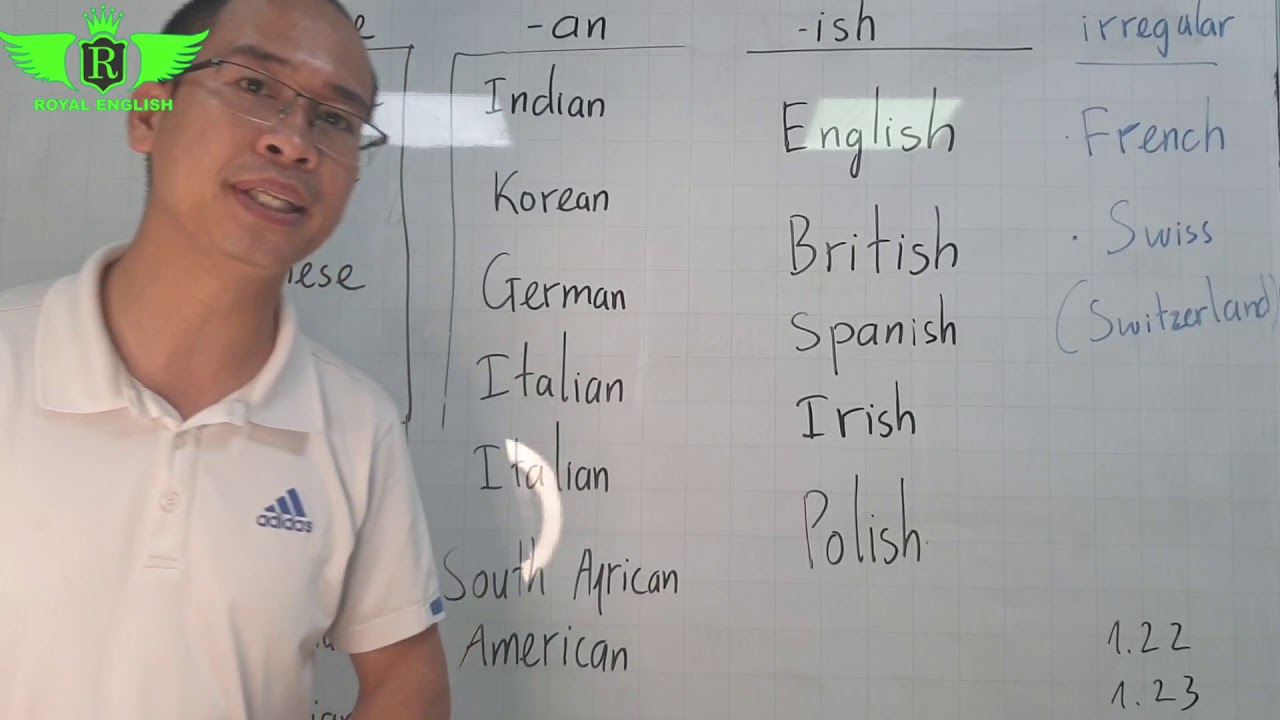 ROYAL ENGLISH
R
-an
Indian
Korean
German
Italian
Italian
South African
American
-ish
English
British
Spanish
Irish
Polish
irregular
· French
· Swiss
(Switzerland)
1.22
1.23
adidas